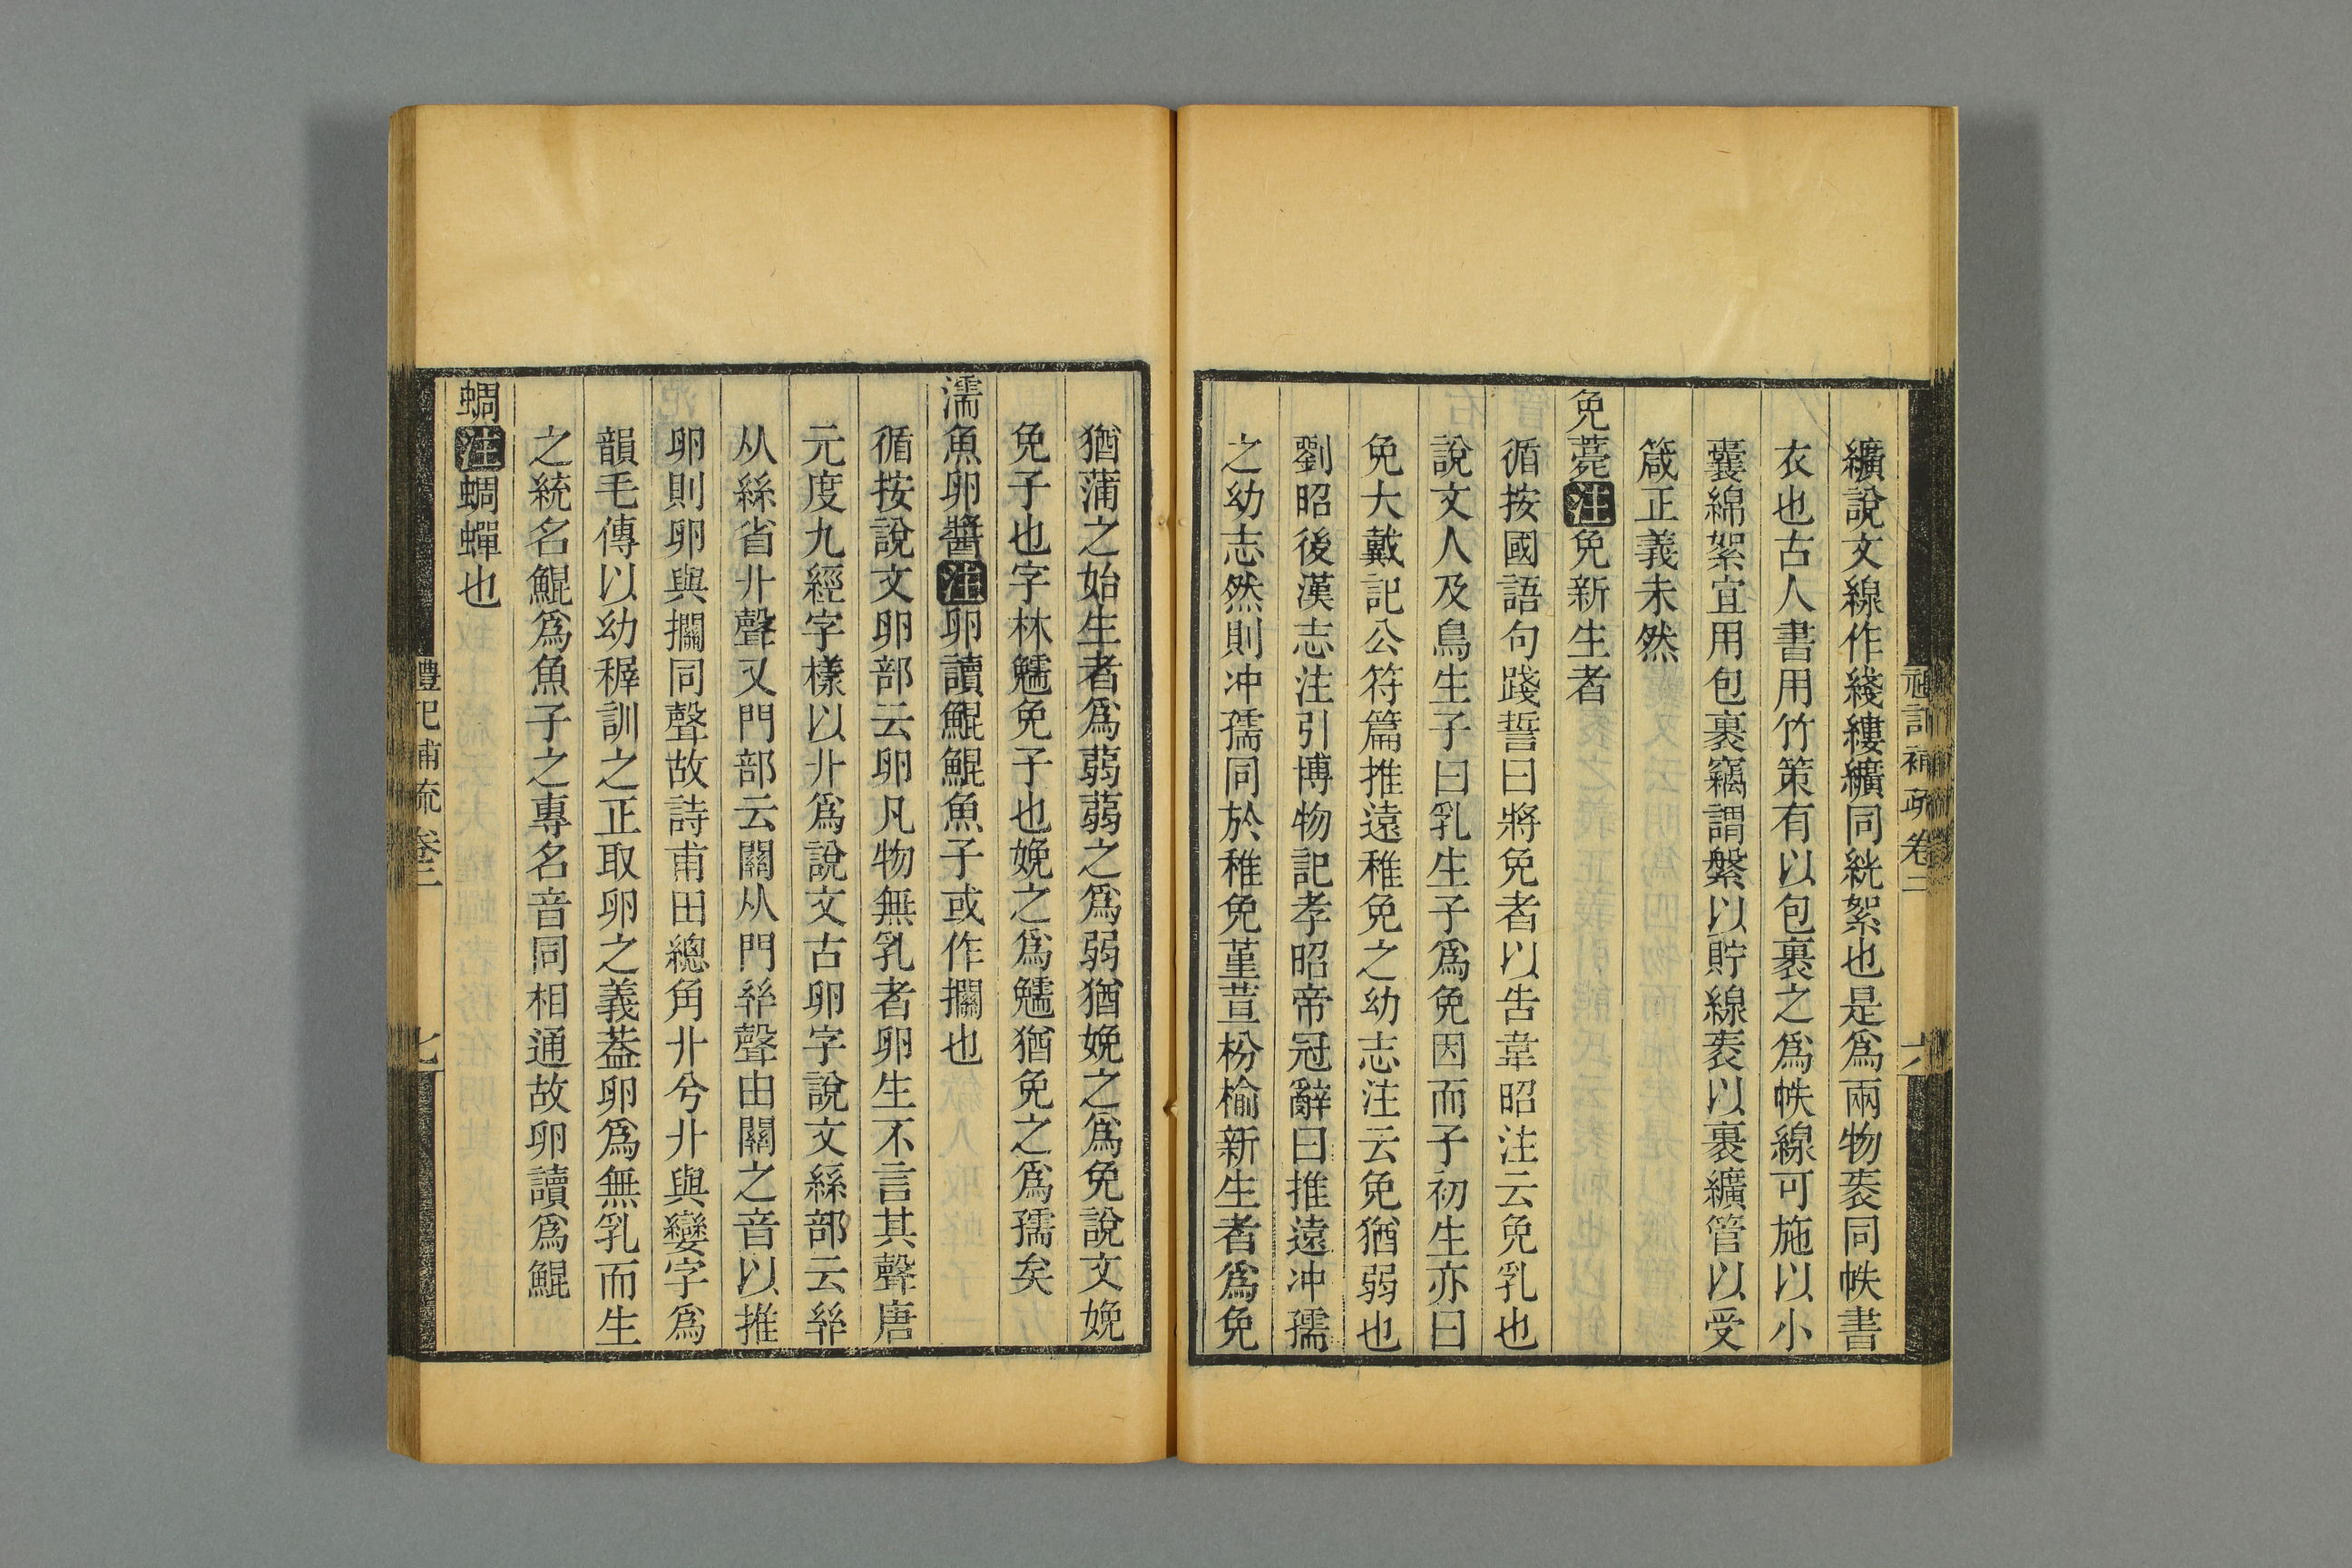 禮記補疏卷二
六
纊說文線作綫縷纊同絖絮也是爲兩物袠同帙書
衣也古人書用竹策有以包裹之爲帙線可施以小
囊綿絮宜用包裹竊謂槃以貯線袠以裹纊管以受
箴正義未然
免薧注免新生者
循按國語句踐誓曰將免者以告韋昭注云免乳也
說文人及鳥生子曰乳生子爲免因而子初生亦曰
免大戴記公符篇推遠稚免之幼志注云免猶弱也
劉昭後漢志注引博物記孝昭帝冠辭曰推遠冲孺
之幼志然則冲孺同於稚免堇荁枌榆新生者爲免
猶蒲之始生者爲蒻蒻之爲弱猶娩之爲免說文娩
免子也字林𩜙免子也娩之爲𩜙猶免之爲孺矣
濡魚卵醬注卵讀鯤鯤魚子或作攔也
循按說文卵部云卵凡物無乳者卵生不言其聲唐
元度九經字樣以卝爲說文古卵字說文絲部云𢇇
从絲省卝聲又門部云關从門𢇇聲由關之音以推
卵則卵與攔同聲故詩甫田總角卝兮卝與孌字爲
韻毛傳以幼穉訓之正取卵之義葢卵爲無乳而生
之統名鯤爲魚子之專名音同相通故卵讀爲鯤
蜩注蜩蟬也
禮記補疏卷二
七